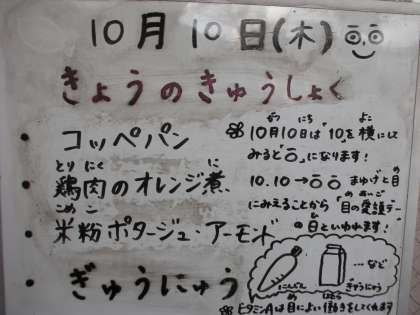 10月10日(木)
きょうのきゅうしょく
・コッペパン
とりにく に
・鶏肉のオレンジ煮
こめこ
・米粉ポタージュ・アーモンド
・ぎゅうにゅう
がつ にち よこ
10月10日は「10」を横にして
みると「 」になります!
10.10→ まゆげと目
にみえることから「目の愛護デー」
の日といわれます!
にんじん
ぎゅうにゅう
…など
ビタミンAは目によい働きをしてくれます